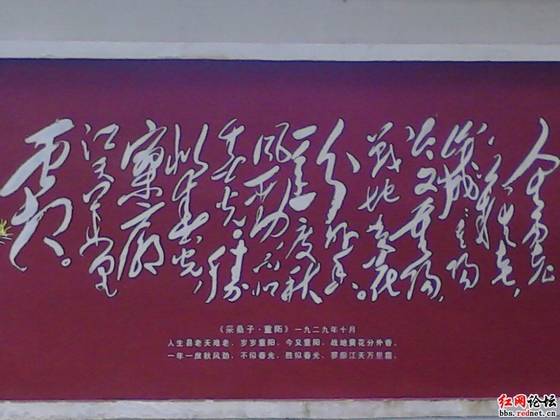 人生易老
天难老，
岁岁重阳，
今又重阳，
战地黄花
分外香。
一年一度秋
风劲，不似
春光。胜
似春光，
寥廓
江天万里
霜。
《采桑子·重阳》 一九二九年十月
人生易老天难老，岁岁重阳，今又重阳，战地黄花分外香。
一年一度秋风劲，不似春光，胜似春光，寥廓江天万里霜。
红网论坛
bbs.rednet.cn